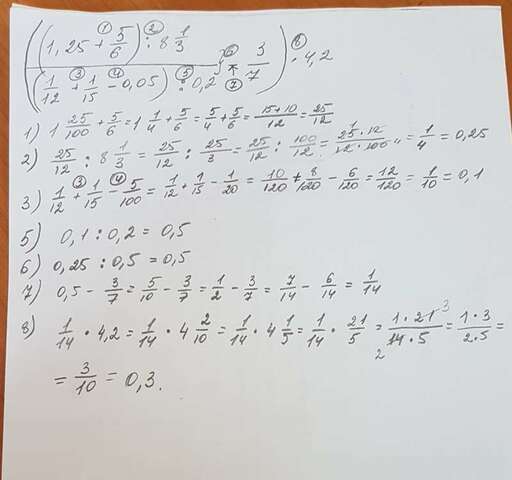 ((1,25 + 5/6) : 8 1/3) / ((1/12 + 1/15 - 0,05) : 0,2) - 3/7) · 4,2
1) 1 25/100 + 5/6 = 1 1/4 + 5/6 = 5/4 + 5/6 = 15+10/12 = 25/12
2) 25/12 : 8 1/3 = 25/12 : 25/3 = 25/12 : 100/12 = 25·12/12·100 = 1/4 = 0,25
3) 1/12 + 1/15 - 5/100 = 1/12 + 1/15 - 1/20 = 10/120 + 8/120 - 6/120 = 12/120 = 1/10 = 0,1
5) 0,1 : 0,2 = 0,5
6) 0,25 : 0,5 = 0,5
7) 0,5 - 3/7 = 5/10 - 3/7 = 1/2 - 3/7 = 7/14 - 6/14 = 1/14
8) 1/14 · 4,2 = 1/14 · 4 2/10 = 1/14 · 4 1/5 = 1/14 · 21/5 = 1·21 3/2 14·5 = 1·3/2·5 =
= 3/10 = 0,3.